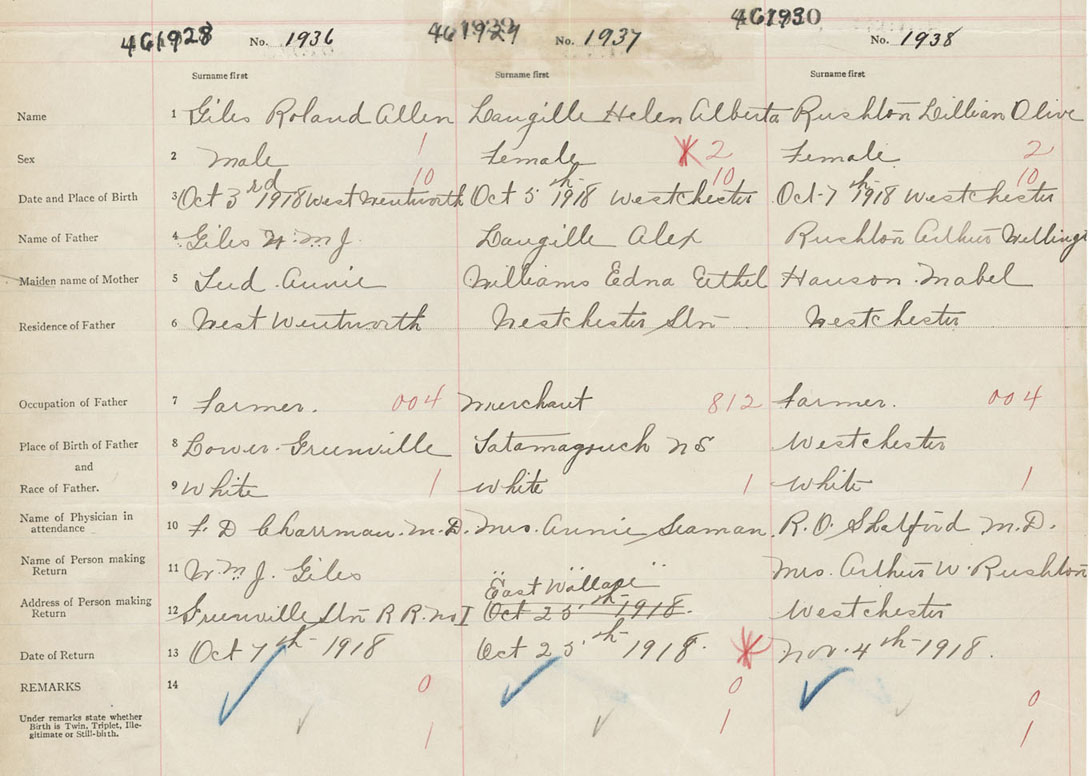 461928 No. 1936 461929 No. 1937 461930 No. 1938
Surname first Surname first Surname first
Name 1 Giles Roland Allen Langille Helen Alberta Rushton Lillian Olive
Sex 2 Male 1 Female 2 Female 2
10 10 10
Date and Place of Birth 3 Oct 3rd 1918 West Wentworth Oct 5th 1918 Westchester Oct 7th 1918 Westchester
Name of Father 4 Giles Wm J. Langille Alex Rushton Arthur
Maiden name of Mother 5 Annie Williams Edna Ethel Hanson Mabel
Residence of Father 6 West Wentworth Westchester Stn Westchester
Occupation of Father 7 Farmer. 004 Merchant 812 Farmer. 004
Place of Birth of Father 8 Lower Greenville Tatamagouch NS Westchester
and
Race of Father. 9 White 1 White 1 White 1
Name of Physician in
attendance 10 F. D. M.D. Mrs. Annie Seaman R. O. Shatford M.D.
Name of Person making
Return 11 Wm J. Giles Mrs. Arthur W. Rushton
"East Wallace"
Address of Person making
Return 12 Greenville Stn R R. No 1 Oct 25th 1918. Westchester
Date of Return 13 Oct 7th 1918 Oct 25th 1918. Nov. 4th 1918.
REMARKS 14 0 0 0
Under remarks state whether
Birth is Twin, Triplet, Ille-
gitimate or Still-birth. 1 1 1